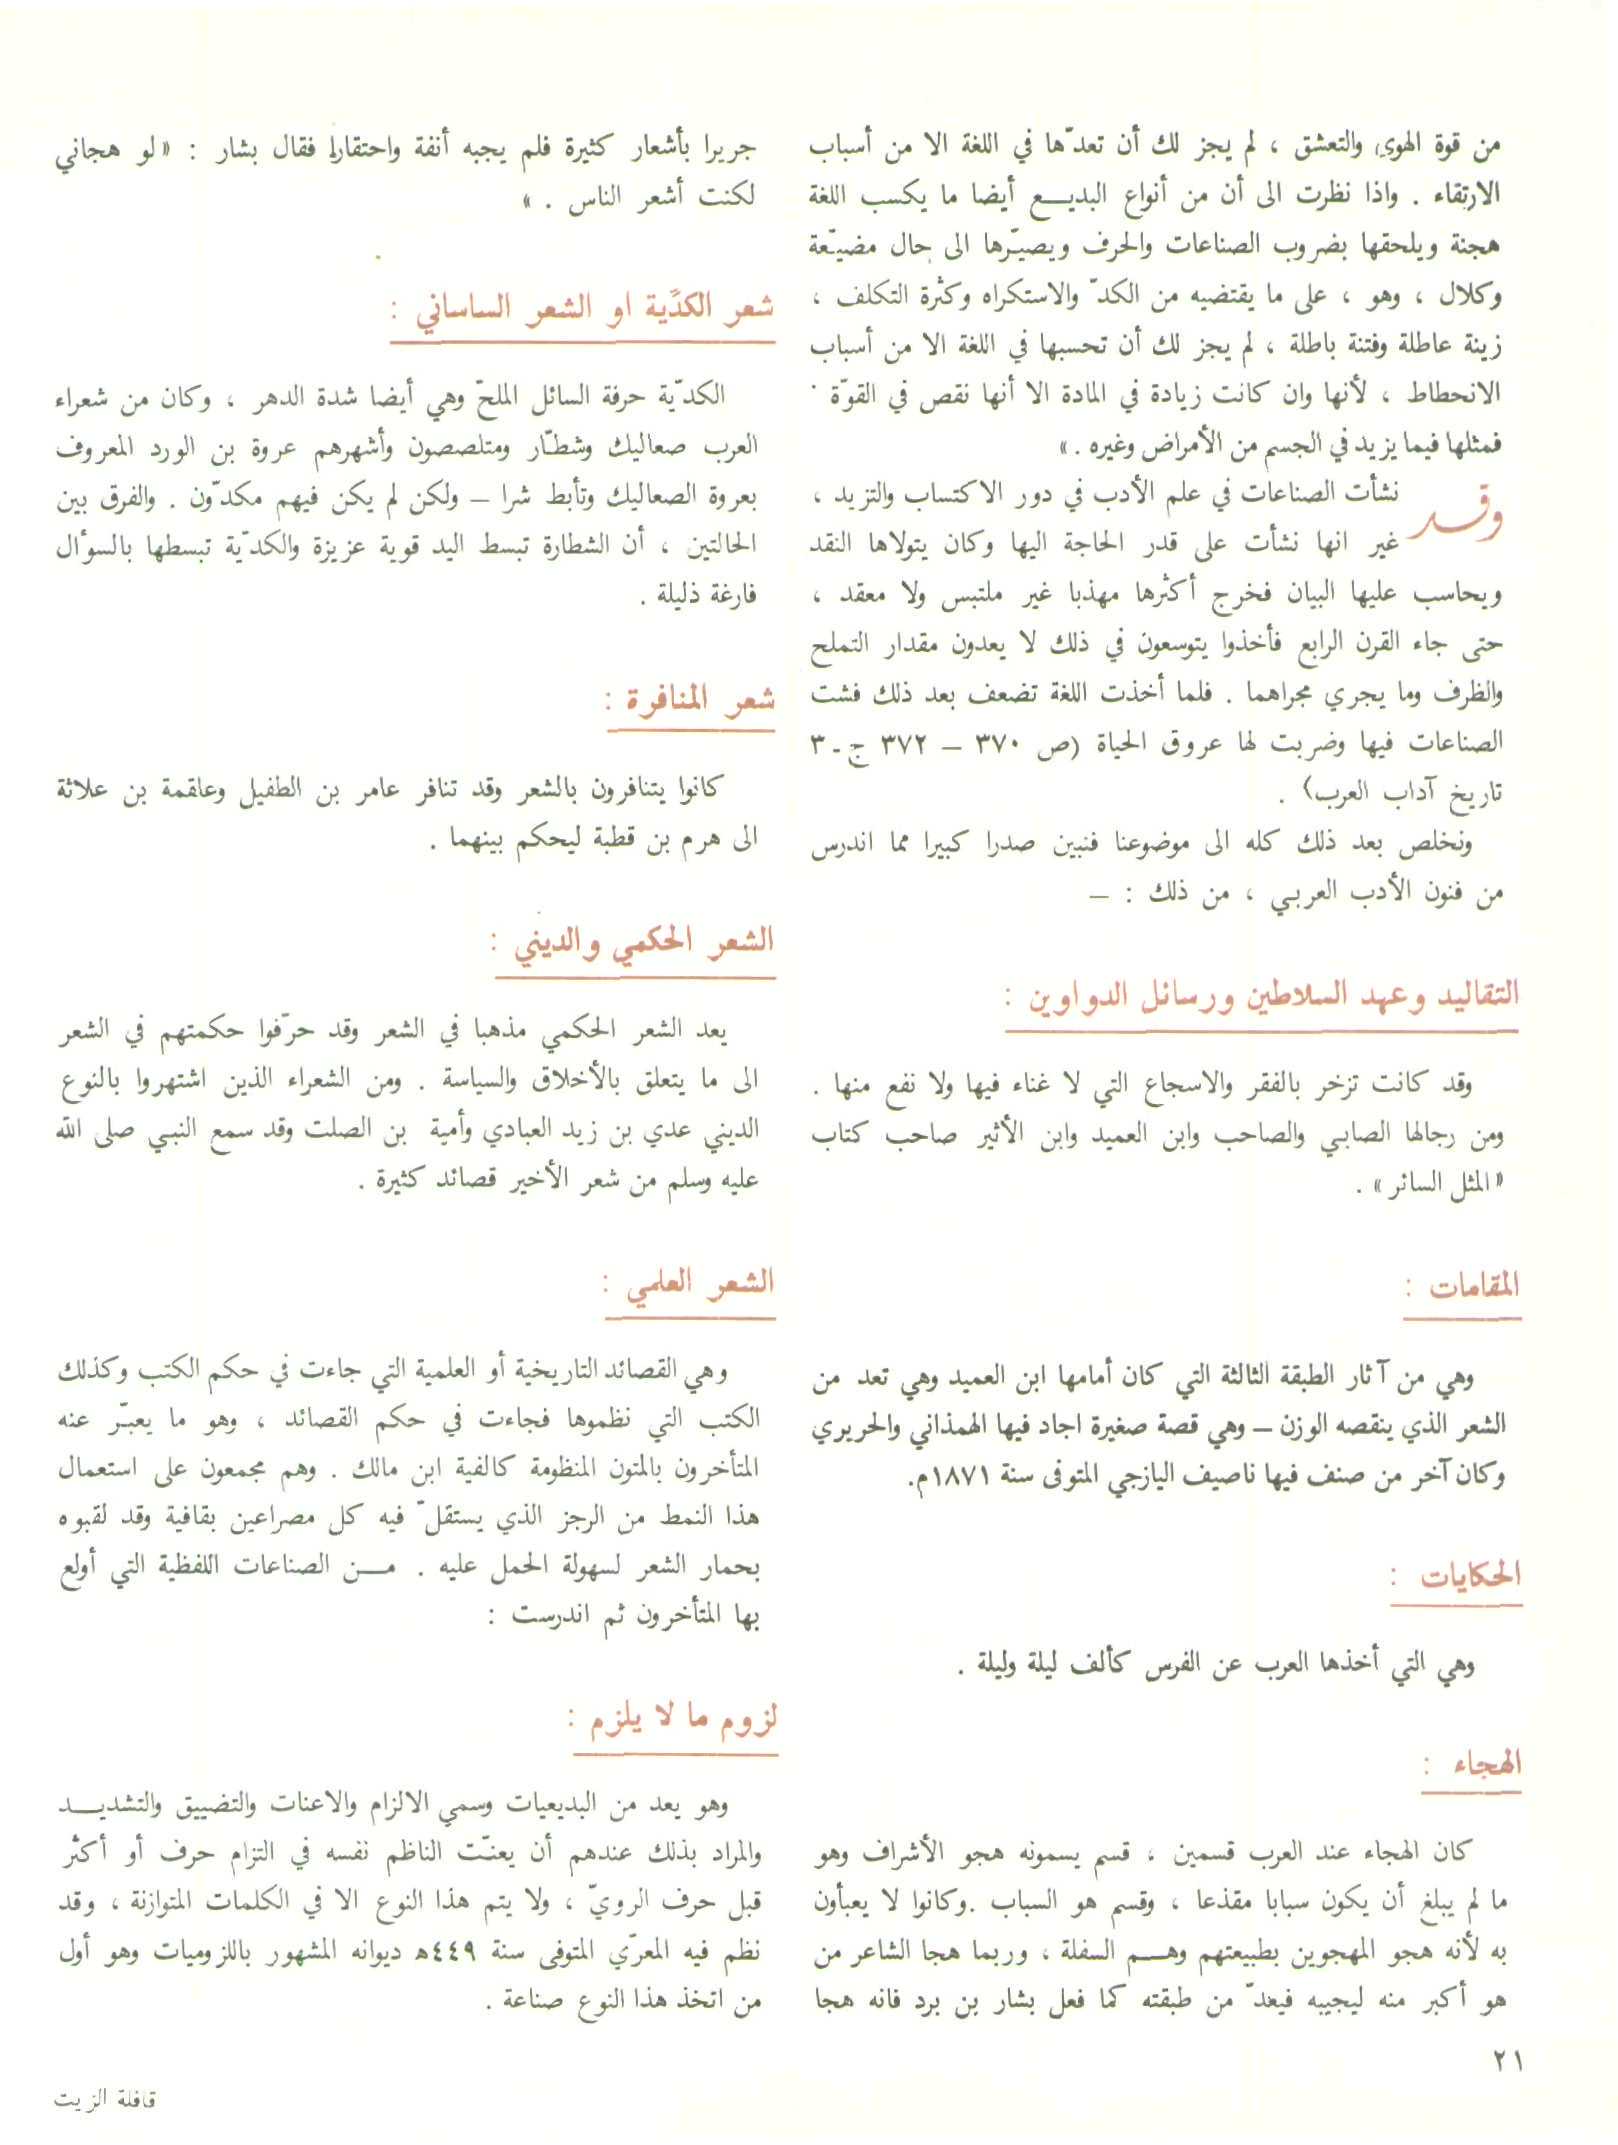 من قوة الهوى والتعشق ، لم يجز لك أن تعدّها في اللغة الا من أسباب
الارتقاء . واذا نظرت الى أن من أنواع البديـــع أيضا ما يكسب اللغة
هجنة ويلحقها بضروب الصناعات والحرف ويصيّرها الى حال مضيّعة
وكلال ، وهو ، على ما يقتضيه من الكدّ والاستكراه وكثرة التكلف ،
زينة عاطلة وفتنة باطلة ، لم يجز لك أن تحسبها في اللغة الا من أسباب
الانحطاط ، لأنها وان كانت زيادة في المادة الا أنها نقص في القوّة .
فمثلها فيما يزيد في الجسم من الأمراض وغيره . »
وقد نشأت الصناعات في علم الأدب في دور الاكتساب والتزيد ،
غير انها نشأت على قدر الحاجة اليها وكان يتولاها النقد
ويحاسب عليها البيان فخرج أكثرها مهذبا غير ملتبس ولا معقد ،
حتى جاء القرن الرابع فأخذوا يتوسعون في ذلك لا يعدون مقدار التملح
والظرف وما يجري مجراهما . فلما أخذت اللغة تضعف بعد ذلك فشت
الصناعات فيها وضربت لها عروق الحياة (ص ٣٧٠ – ٣٧٢ ج - ٣
تاريخ آداب العرب) .
ونخلص بعد ذلك كله الى موضوعنا فنبين صدرا كبيرا مما اندرس
من فنون الأدب العربي ، من ذلك : –
التقاليد وعهد السلاطين ورسائل الدواوين :
وقد كانت تزخر بالفقر والاسجاع التي لا غناء فيها ولا نفع منها .
ومن رجالها الصابي والصاحب وابن العميد وابن الأثير صاحب كتاب
« المثل السائر » .
المقامات :
وهي من آثار الطبقة الثالثة التي كان أمامها ابن العميد وهي تعد من
الشعر الذي ينقصه الوزن – وهي قصة صغيرة اجاد فيها الهمذاني والحريري
وكان آخر من صنف فيها ناصيف اليازجي المتوفى سنة ١٨٧١م.
الحكايات :
وهي التي أخذها العرب عن الفرس كألف ليلة وليلة .
الهجاء :
كان الهجاء عند العرب قسمين ، قسم يسمونه هجو الأشراف وهو
ما لم يبلغ أن يكون سبابا مقذعا ، وقسم هو السباب .وكانوا لا يعبأون
به لأنه هجو المهجوين بطبيعتهم وهـــم السفلة ، وربما هجا الشاعر من
هو أكبر منه ليجيبه فيعدّ من طبقته كما فعل بشار بن برد فانه هجا
جريرا بأشعار كثيرة فلم يجبه أنفة واحتقارا فقال بشار : « لو هجاني
لكنت أشعر الناس . »
شعر الكدّية او الشعر الساساني :
الكدّية حرفة السائل الملحّ وهي أيضا شدة الدهر ، وكان من شعراء
العرب صعاليك وشطّار ومتلصصون وأشهرهم عروة بن الورد المعروف
بعروة الصعاليك وتأبط شرا – ولكن لم يكن فيهم مكدّون . والفرق بين
الحالتين ، أن الشطارة تبسط اليد قوية عزيزة والكدّية تبسطها بالسؤال
فارغة ذليلة .
شعر المنافرة :
كانوا يتنافرون بالشعر وقد تنافر عامر بن الطفيل وعاقمة بن علاثة
الى هرم بن قطبة ليحكم بينهما .
الشعر الحكمي والديني :
يعد الشعر الحكمي مذهبا في الشعر وقد حرّفوا حكمتهم في الشعر
الى ما يتعلق بالأخلاق والسياسة . ومن الشعراء الذين اشتهروا بالنوع
الديني عدي بن زيد العبادي وأمية بن الصلت وقد سمع النبي صلى الله
عليه وسلم من شعر الأخير قصائد كثيرة .
الشعر العلمي :
وهي القصائد التاريخية أو العلمية التي جاءت في حكم الكتب وكذلك
الكتب التي نظموها فجاءت في حكم القصائد ، وهو ما يعبّر عنه
المتأخرون بالمتون المنظومة كالفية ابن مالك . وهم مجمعون على استعمال
هذا النمط من الرجز الذي يستقلّ فيه كل مصراعين بقافية وقد لقبوه
بحمار الشعر لسهولة الحمل عليه . مـــن الصناعات اللفظية التي أولع
بها المتأخرون ثم اندرست :
لزوم ما لا يلزم :
وهو يعد من البديعيات وسمي الالزام والاعنات والتضييق والتشديـــد
والمراد بذلك عندهم أن يعنّت الناظم نفسه في التزام حرف أو أكثر
قبل حرف الرويّ ، ولا يتم هذا النوع الا في الكلمات المتوازنة ، وقد
نظم فيه المعرّي المتوفى سنة ٤٤٩ه ديوانه المشهور باللزوميات وهو أول
من اتخذ هذا النوع صناعة .
٢١
قافلة الزيت